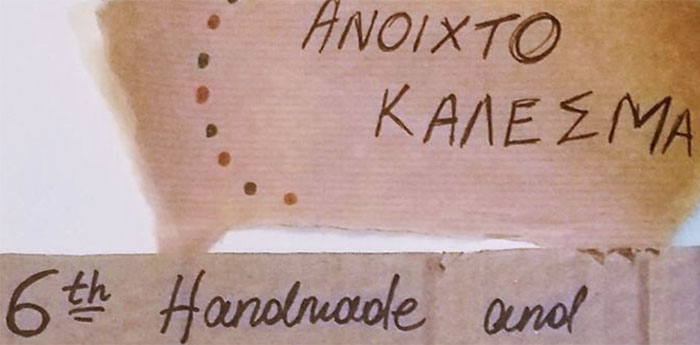 ΑΝΟΙΧΤΟ
ΚΑΛΕΣΜΑ
6th Handmade and